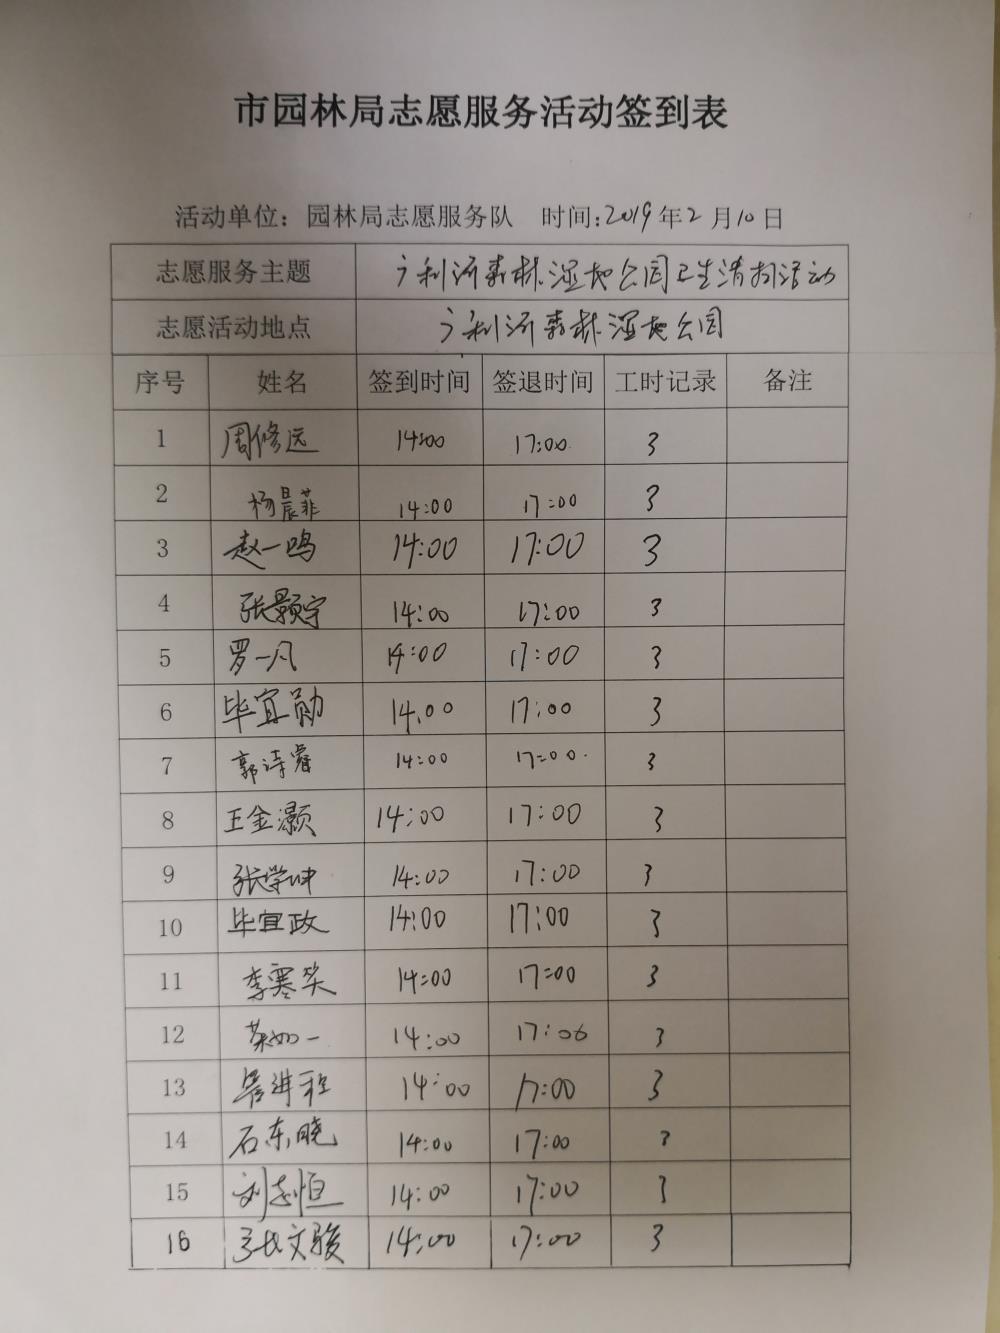 市园林局志愿服务活动签到表
活动单位：园林局志愿服务队 时间:2019年2月10日
志愿服务主题 广利河森林湿地公园卫生清扫活动
志愿活动地点 广利河森林湿地公园
序号 姓名 签到时间 签退时间 工时记录 备注
1 周修远 14:00 17:00 3
2 杨晨菲 14:00 17:00 3
3 赵一鸣 14:00 17:00 3
4 张颢宇 14:00 17:00 3
5 罗一凡 14:00 17:00 3
6 毕宜勋 14:00 17:00 3
7 郭诗睿 14:00 17:00 3
8 王金灏 14:00 17:00 3
9 张学坤 14:00 17:00 3
10 毕宜政 14:00 17:00 3
11 李寒笑 14:00 17:00 3
12 如一 14:00 17:00 3
13 进程 14:00 17:00 3
14 石东晓 14:00 17:00 3
15 刘志恒 14:00 17:00 3
16 张文骏 14:00 17:00 3